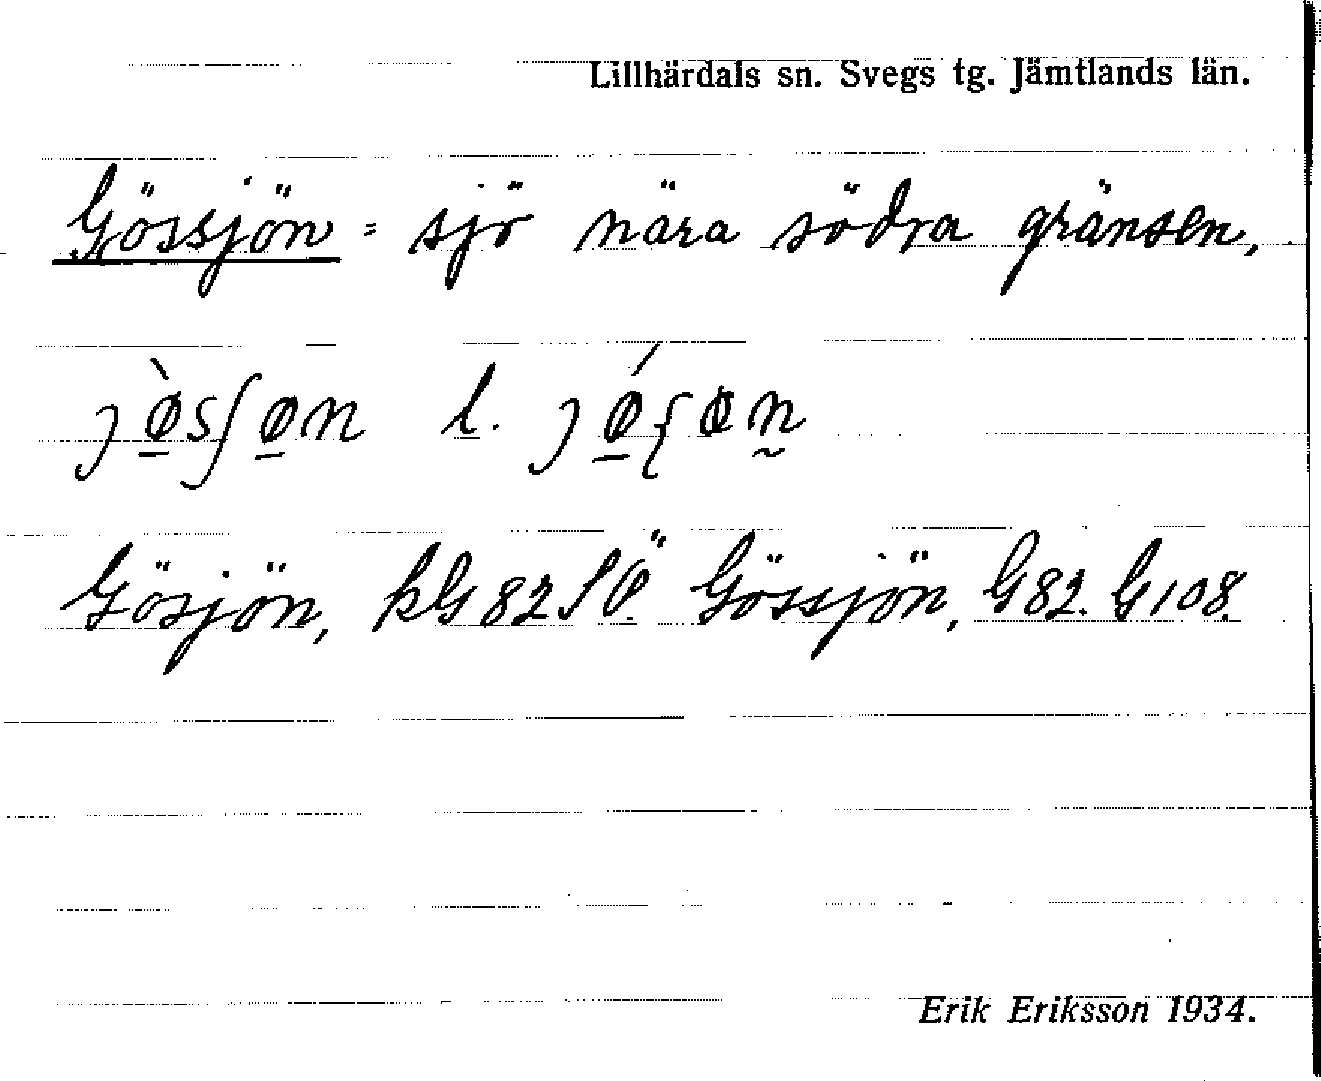 Lillhärdals sn. Svegs tg. Jämtlands län.
Gössjön = sjö nära södra gränsen,
ȷø̠̀sʃø̠n l. ȷǿ̠ʃøn̰
Gösjön, kG82SÖ. Gössjön, G82. G108.
Erik Eriksson 1934.